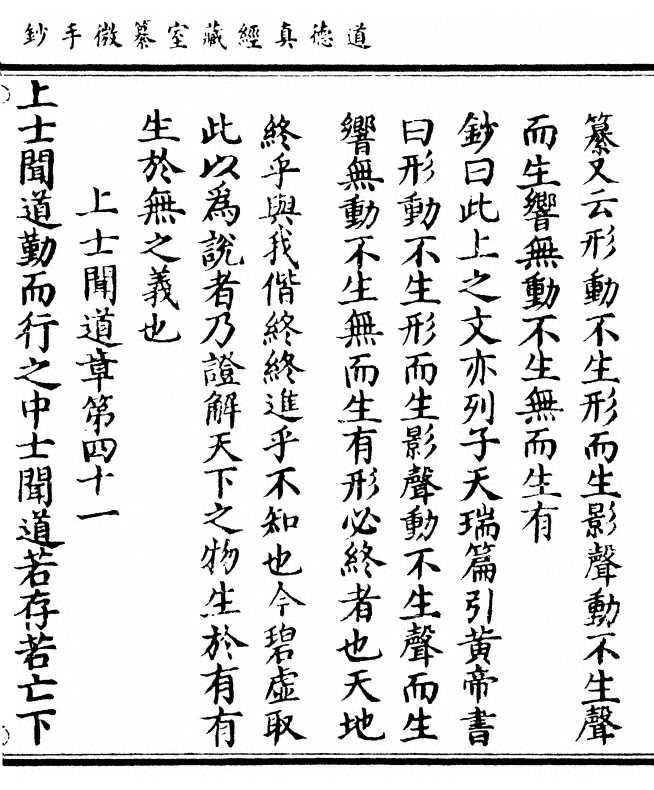 道德真經藏室纂微手鈔
纂又云形動不生形而生影聲動不生聲
而生響無動不生無而生有
鈔曰此上之文亦列子天瑞篇引黃帝書
曰形動不生形而生影聲動不生聲而生
響無動不生無而生有形必終者也天地
終乎與我偕終終進乎不知也今碧虛取
此以為說者乃證解天下之物生於有有
生於無之義也
上士聞道章第四十一
上士聞道勤而行之中士聞道若存若亡下